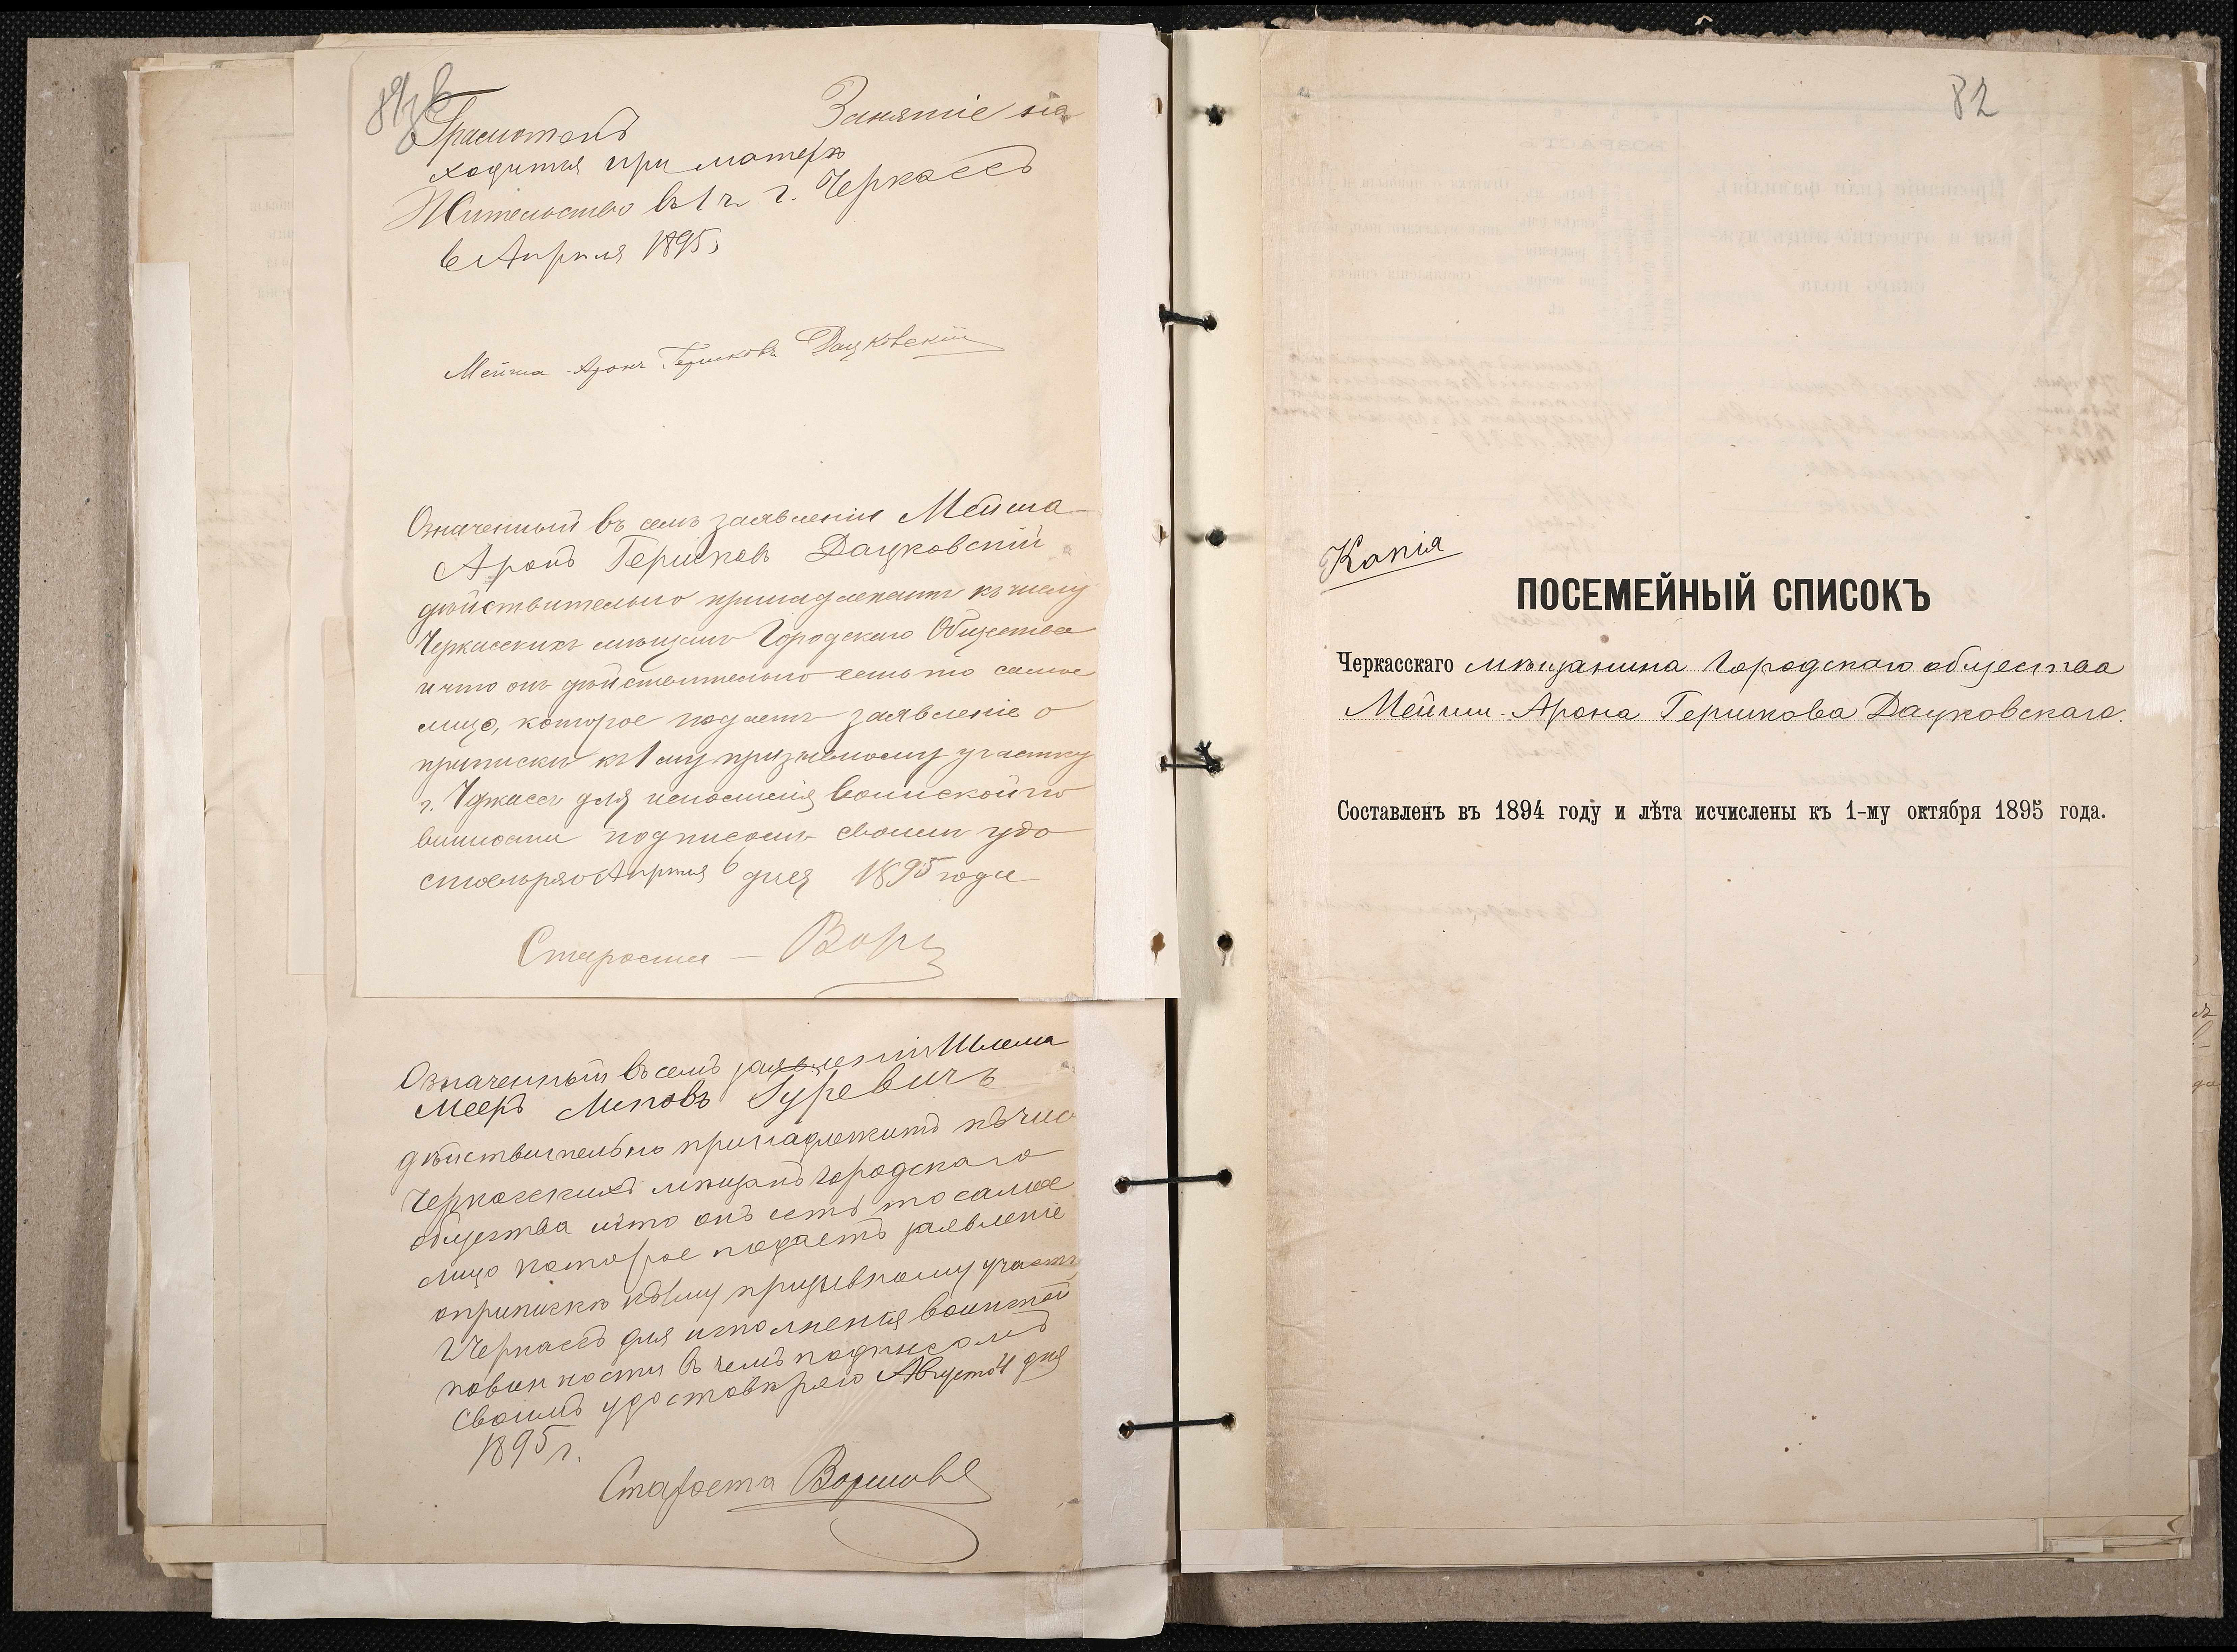 Грамотенъ Занятіе на
ходится при матери
Жительство въ 1 ч. г. Черкассъ
6 Апрѣля 1895
Мейша-Аронъ Гершковъ Дацковскій
Означенный въ семъ заявленіи Мейша-
Аронъ Гершковъ Дацковскій
дѣйствительно принадлежитъ къ числу
Черкасскихъ мѣщанъ Городскаго Общества
и что онъ дѣйствительно есть то самое
лицо, которое подаетъ заявленіе о
припискѣ къ 1му призывному участку
г. Черкассъ для исполненія воинской по
винности подписомъ своимъ удо
стовѣряю Апрѣля 6 дня 1895 года
Староста
Означенный въ семъ заявленіи Шлема
Мееръ Гуревичъ
дѣйствительно принадлежитъ къ чис
Черкасскихъ мѣщанъ городскаго
общества и что онъ есть то самое
лицо которое подаетъ заявленіе
о припискѣ къ 1му призывному участ
г Черкассъ для исполненія воинской
повинности въ чемъ подписомъ
своимъ удостовѣряю Августа дня
1895 г.
Староста
82
Копія
ПОСЕМЕЙНЫЙ СПИСОКЪ
Черкасскаго мѣщанина Городскаго общества
Мейши-Арона Гершкова Дацковскаго.
Составленъ въ 1894 году и лѣта исчислены къ 1-му октября 1895 года.